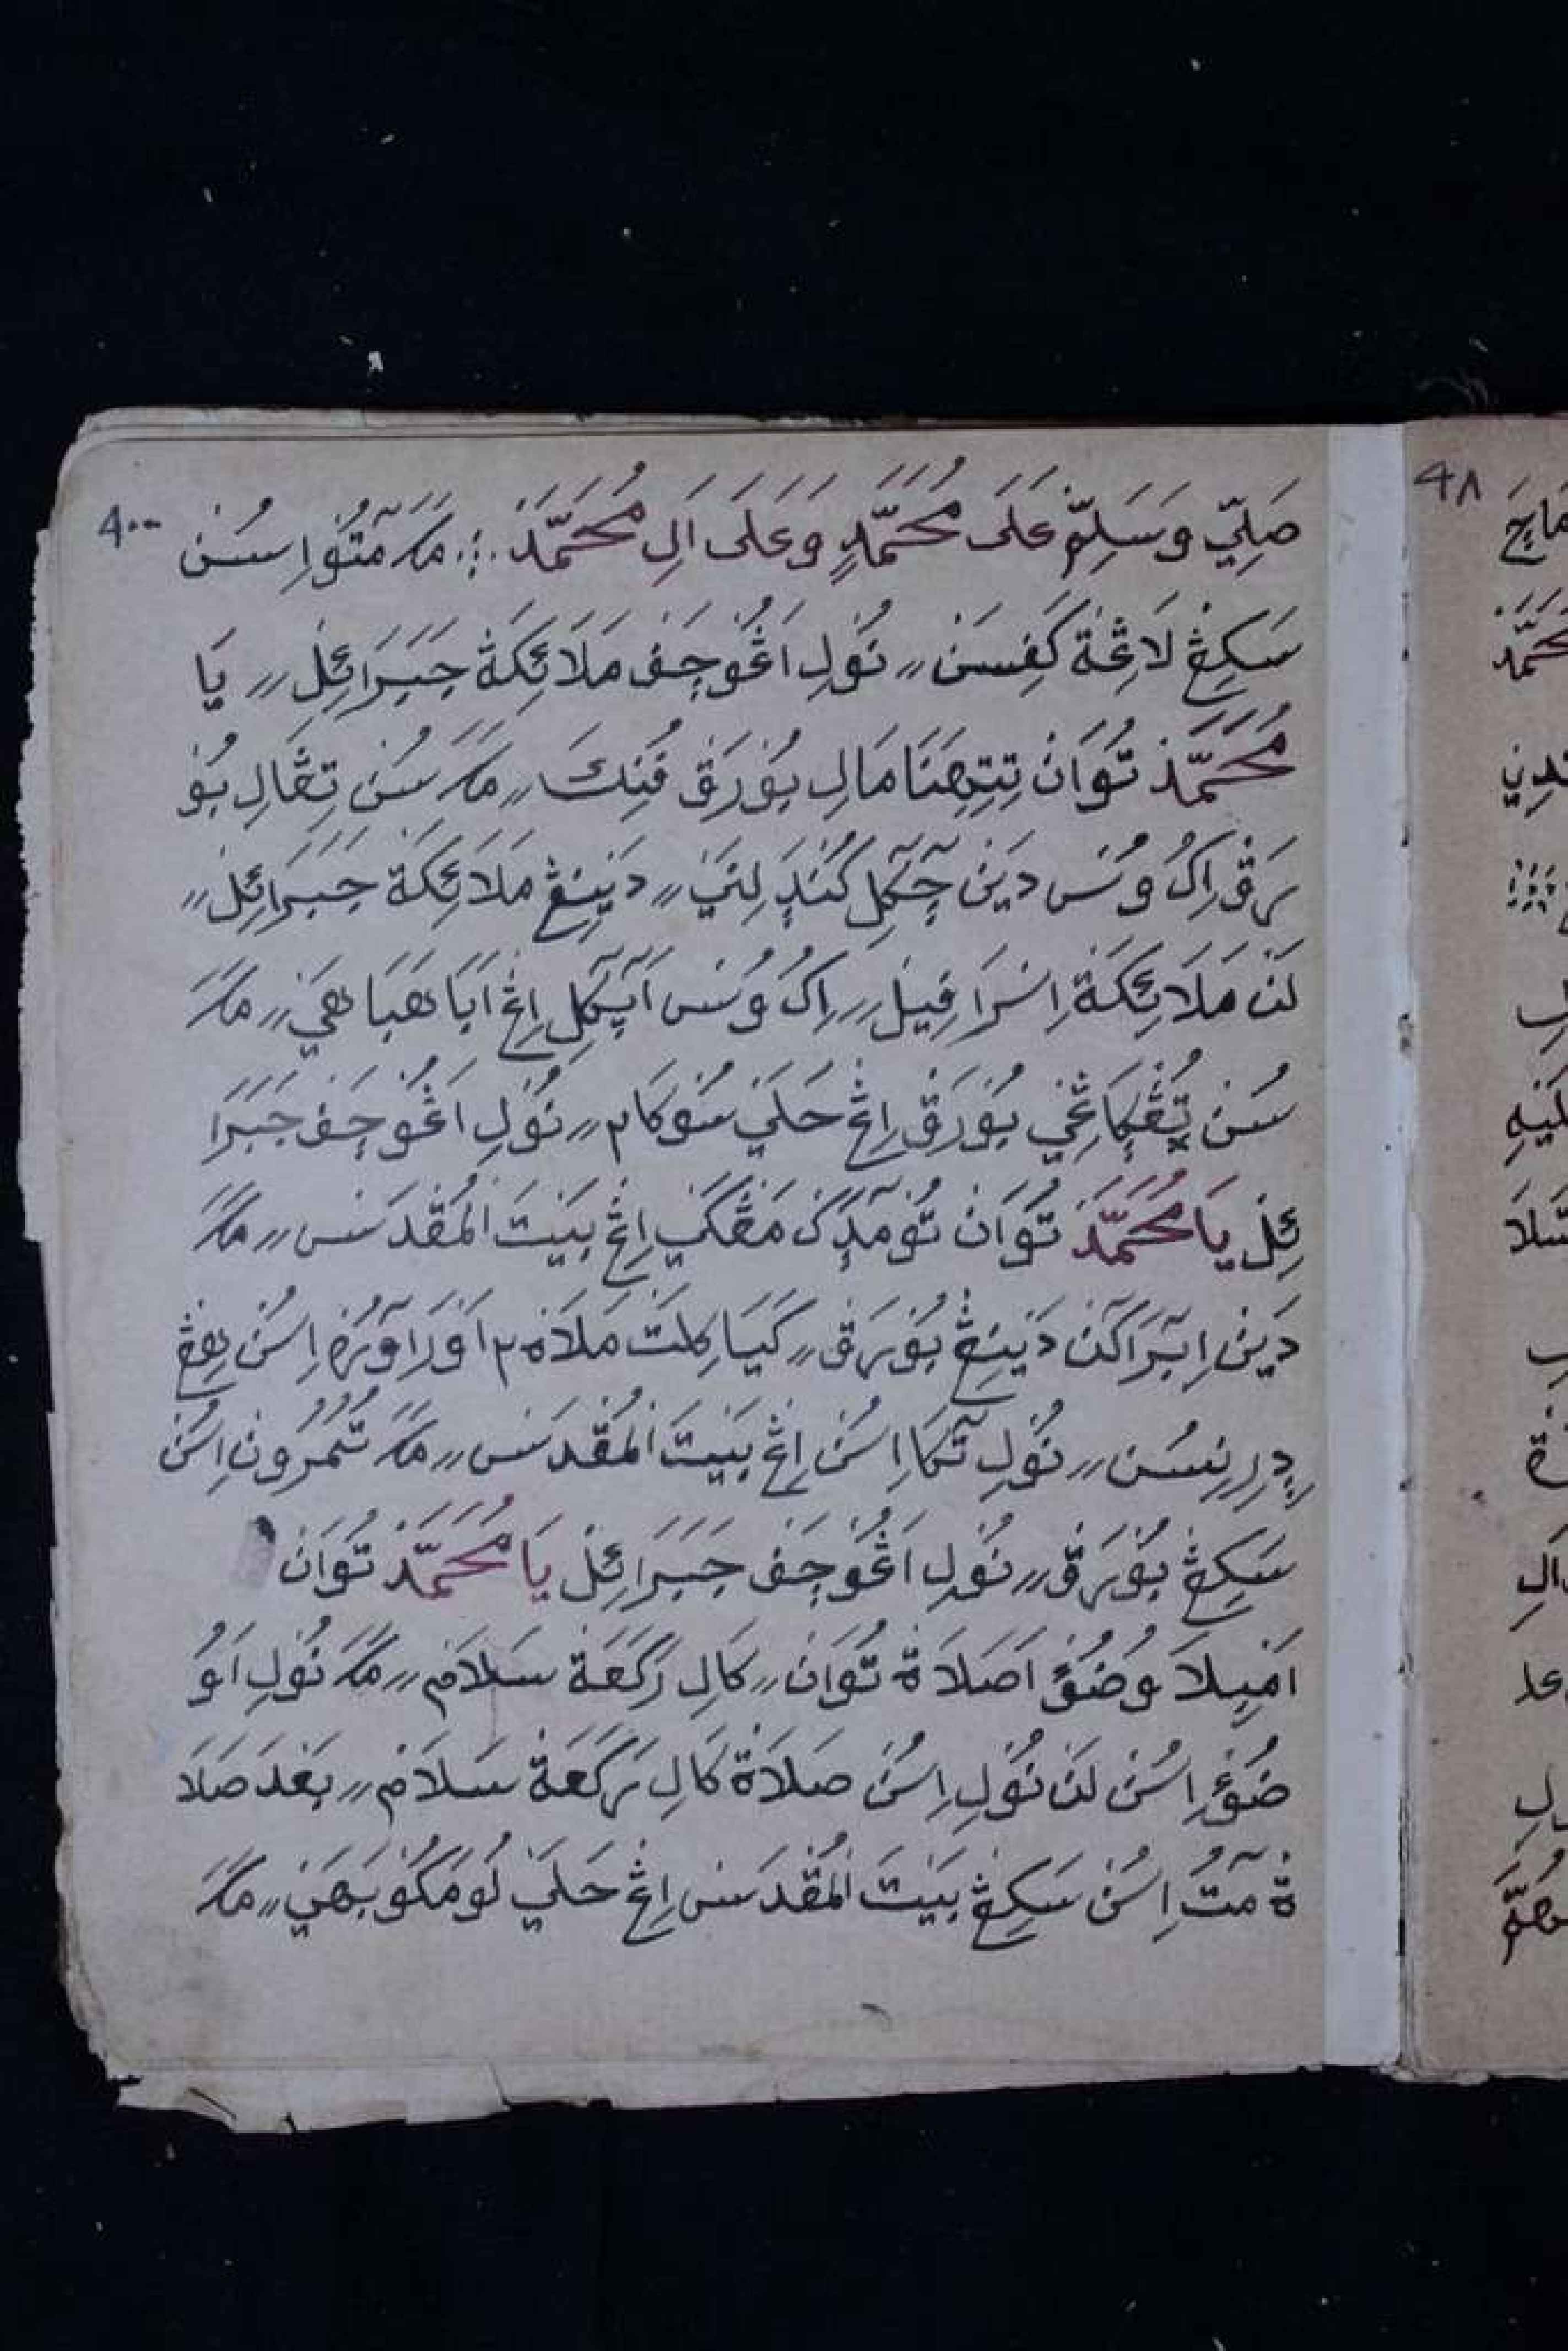 ٤٠٠
صَلِيّ وَسَلِمّ عَلَى مُحَمَّدٍ وَعَلَى اَلِ مُحَمَّدْ ؞ مَكَ مَتُوْا اِسُنْ
سَكِڠْ لَاڠِةْ كَفِسَنْ〃 نُوْلِ اَڠُوْجَفْ مَلَائِكَةْ جَبَرَائِلْ〃 يَا
مُحَمَّدْ تُوَانْ تِتِهَنَا مَالِ بُوْرَقْ فُنِكَ〃 مَكَ سُنْ تِڠَالِ بُوْ
رَقْ اِكُ وُسْ دَيْنْ چَكَلْ كَنْدَلِنَيْ〃 دَيْنِڠْ مَلَائِكَةْ جَبَرَائِلْ〃
لَنْ مَلَائِكَةْ اِسْرَافِيلْ〃 اِكُ وُسْ اَپَكَلْ اِڠْ اَبَا هَبَا هَيْ〃 مَكَ
سُنْ تُڠْكَاڠَيْ بُوْرَقْ اِڠْ حَلَيْ سُوْكَامْ〃 نُوْلِ اَڠُوْجَفْ جَبَرَا
ئِلْ يَا مُحَمَّدْ تُوَانْ تُوْمَدَكْ مَڠْكَيْ اِڠْ بَيْتَ الْمُقَدَسْ〃 مَكَ
دَيْنْ اِبَرَاكَنْ دَيْنِڠْ بُوْرَقْ〃 كَيَا كِلَتْ مَلَاهْ٢ اَوْرَا وَرُهْ اِسُنْ هِڠْ
دِرِنِسُنْ〃 نُوْلِ تَكَا اِسُنْ اِڠْ بَيْتَ الْمُقَدَسْ〃 مَكَ تُمُرُونْ اِسُنْ
سَكِڠْ بُوْرَقْ〃 نُوْلِ اَڠُوْجَفْ جَبَرَائِلْ يَا مُحَمَّدْ تُوَانْ
اَمْبِلَا وُضُوْءْ اَصَلَاةْ تُوَانْ〃 كَالِ رَكَعَةْ سَلَامْ〃 مَكَ نُوْلِ اَوُ
ضُوْءْ اِسُنْ لَنْ نُوْلِ اِسُنْ صَلَاةْ كَالِ رَكَعَةْ سَلَامْ〃 بَعْدَ صَلَا
ةْ مَتُ اِسُنْ سَكِڠْ بَيْتَ الْمُقَدَسْ اِڠْ حَلَيْ لُوْمَكُوْ بَهَيْ〃 مَكَ